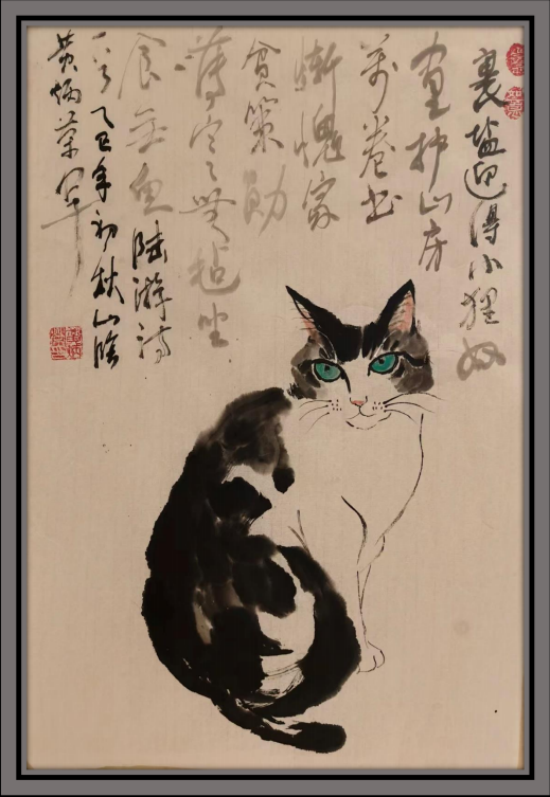 裹盐迎得小狸奴
尽护山房
万卷书
惭愧家
贫策勋
薄寒无毡坐
食无鱼 陆游诗
一首 乙巳年初秋山阴
黄炳荣写